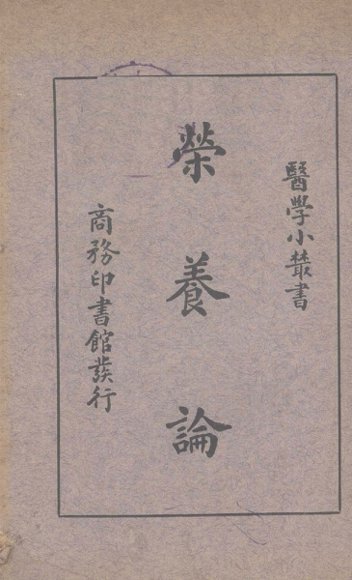 醫學小叢書
榮養論
商務印書館發行